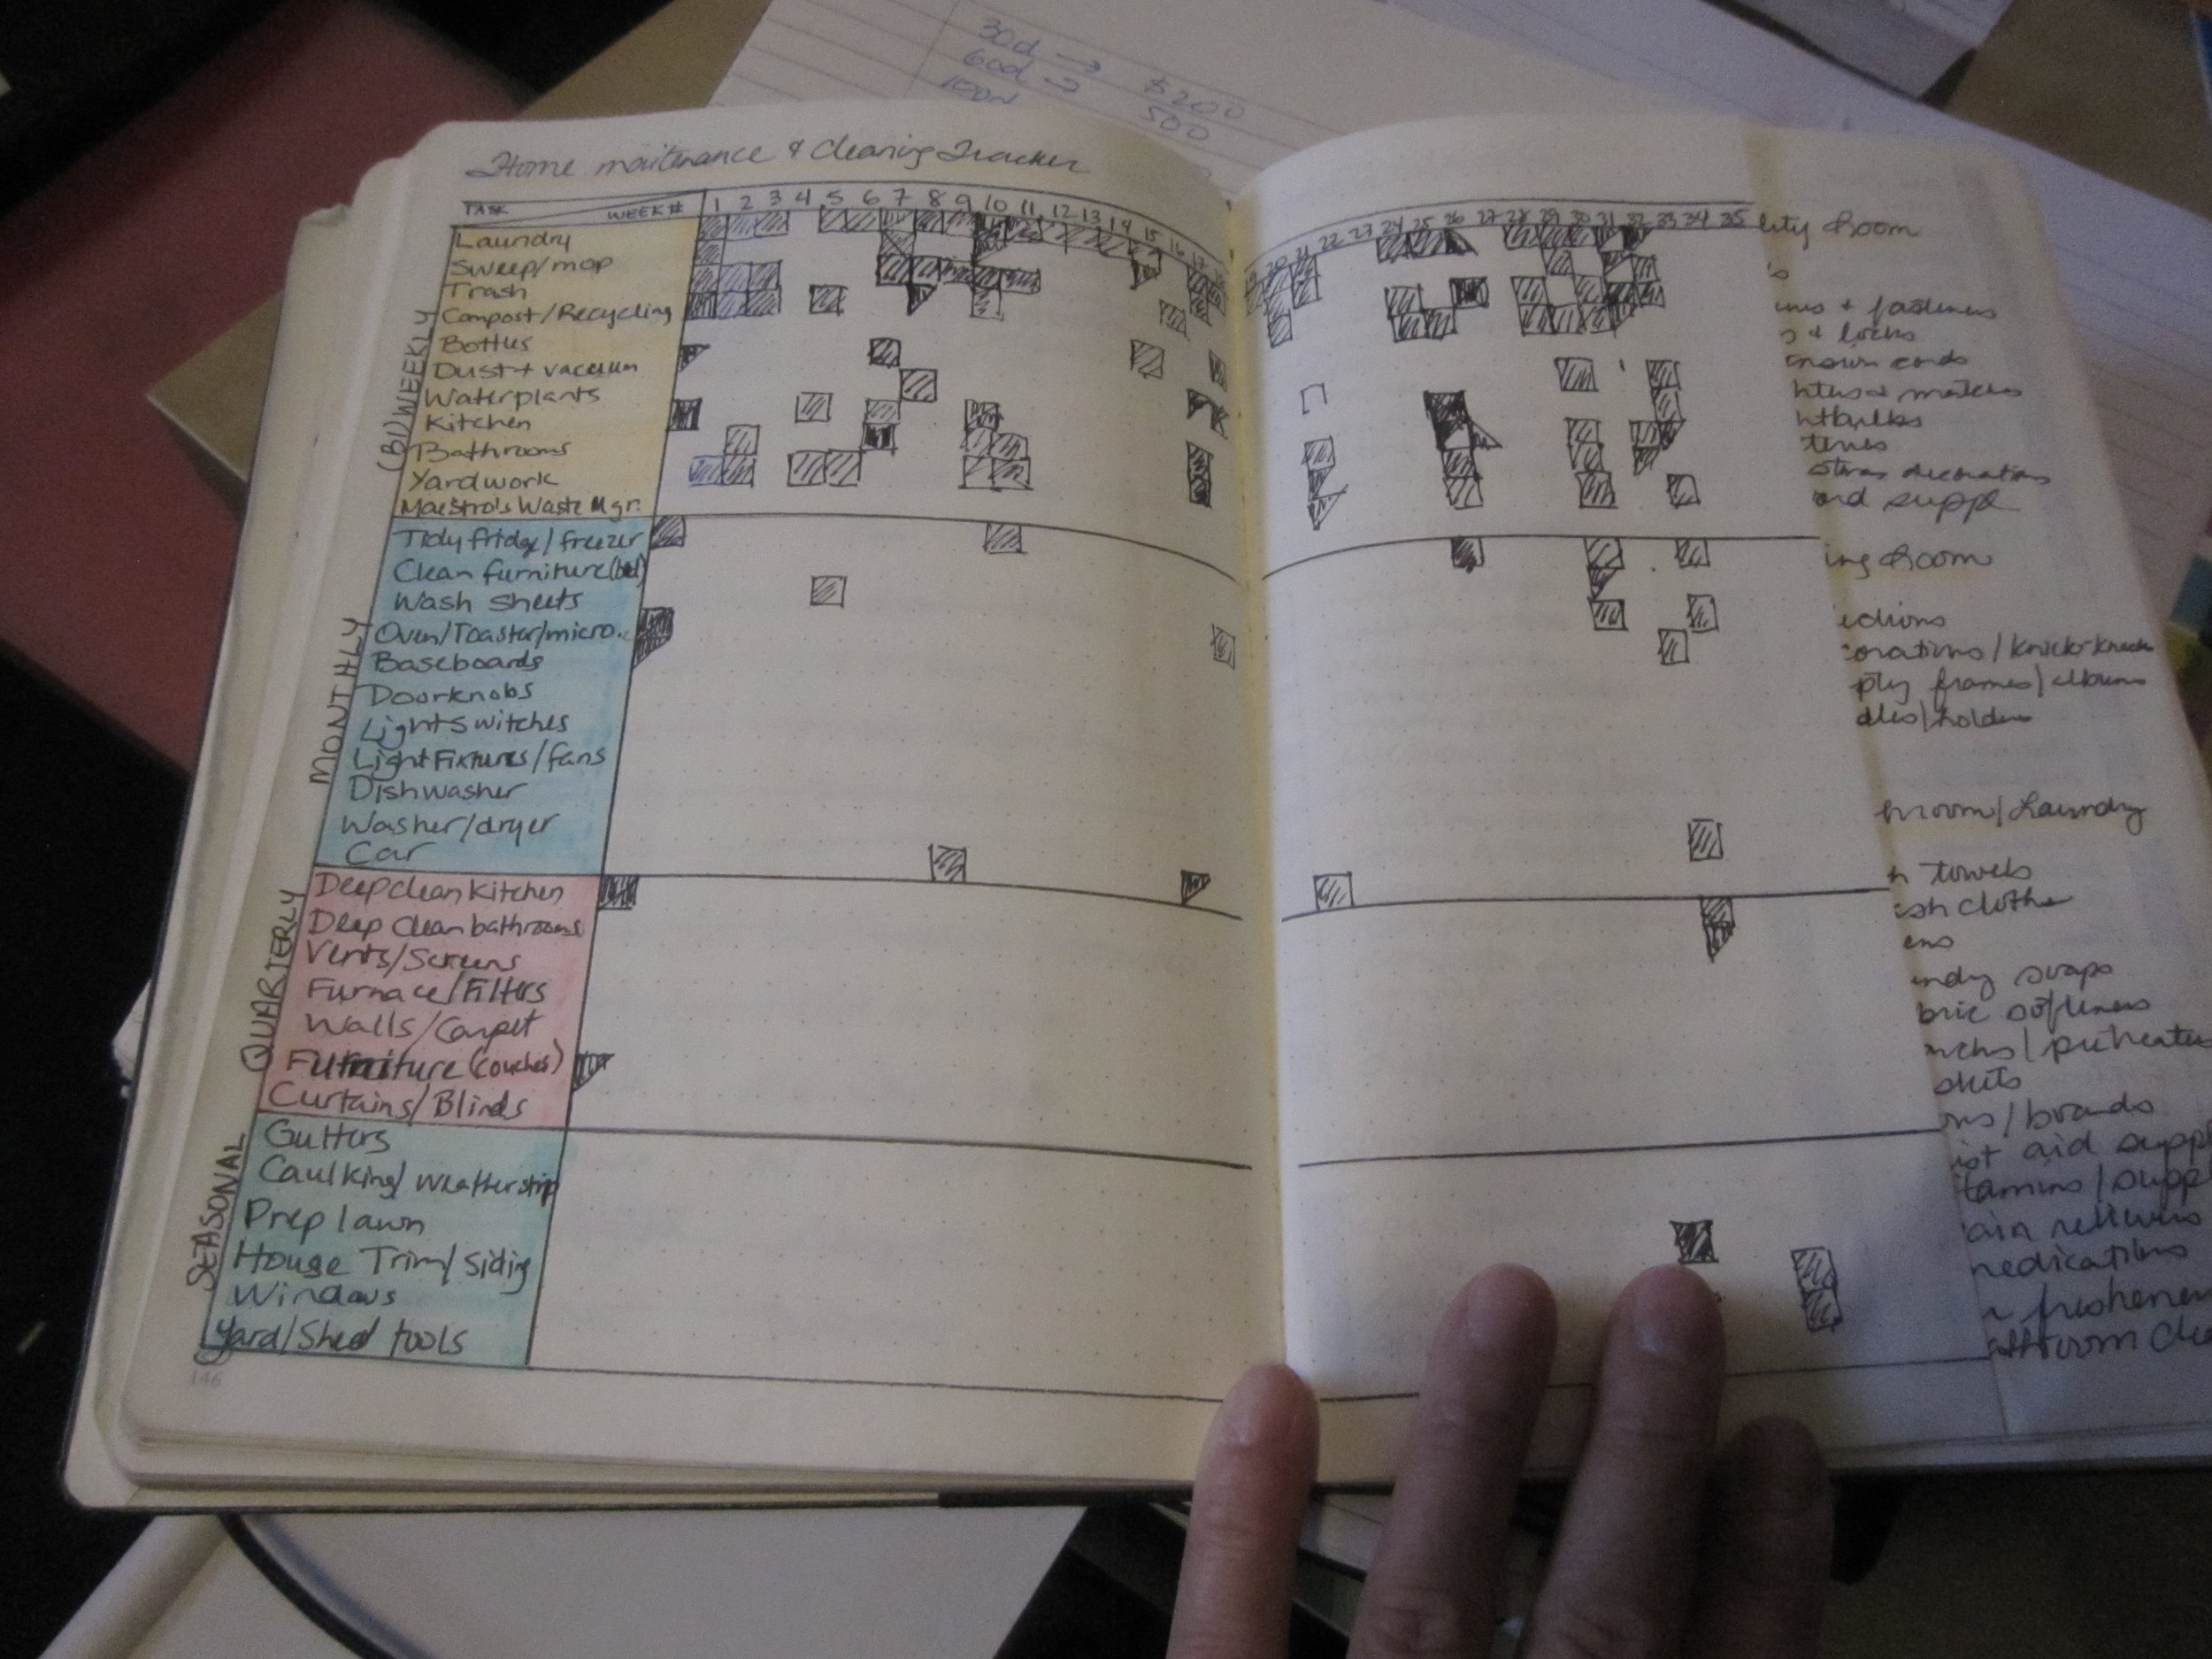 30d → $200
60d → 500
Home maitenance & Cleaning Tracker
TASK WEEK# 1 2 3 4 5 6 7 8 9 10 11 12 13 14 15 16 17 18 20 21 22 23 24 25 26 27 28 29 30 31 32 33 34 35
(BI)WEEKLY
Laundry
Sweep/mop
Trash
Compost/Recycling
Bottles
Dust + vacuum
Water plants
Kitchen
Bathrooms
Yardwork
Maestro's Waste Mgr.
MONTHLY
Tidy fridge/freezer
Clean furniture (bed)
Wash sheets
Oven/Toaster/micro.
Baseboards
Doorknobs
Light switches
Light Fixtures/fans
Dishwasher
Washer/dryer
Car
QUARTERLY
Deep clean kitchen
Deep clean bathrooms
Vents/Screens
Furnace/Filters
Walls/Carpet
Furniture (couches)
Curtains/Blinds
SEASONAL
Gutters
Caulking/weatherstrip
Prep lawn
House Trim/Siding
Windows
Yard/Shed tools
146
lity Room
+ fasteners
+ locks
cords
matches
decorations
suppl
ing Room
orations/knick-knacks
pty frames/albums
dles/holders
hroom/Laundry
towels
sh cloths
ens
ndry soaps
bric softeners
skets
ons/boards
st aid suppl
tamins/suppl
ain relievers
nedications
r fresheners
athroom cle